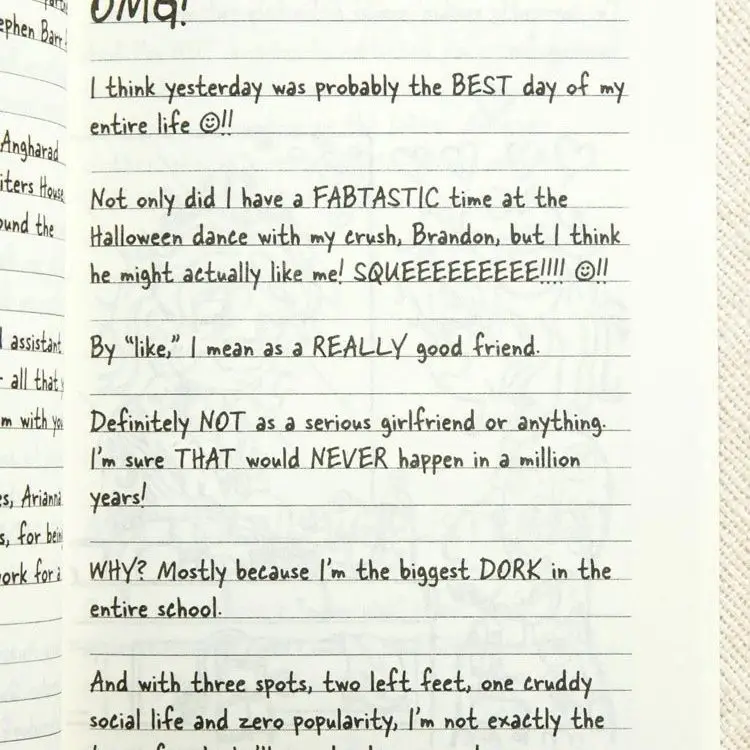 ephen Barr
Angharad
iters House
ound the
assistant
all that
m with you
es, Arianna
s, for bein
ork for a
OMG!
I think yesterday was probably the BEST day of my
entire life ☺!!
Not only did I have a FABTASTIC time at the
Halloween dance with my crush, Brandon, but I think
he might actually like me! SQUEEEEEEEEEE!!!! ☺!!
By “like,” I mean as a REALLY good friend.
Definitely NOT as a serious girlfriend or anything.
I’m sure THAT would NEVER happen in a million
years!
WHY? Mostly because I’m the biggest DORK in the
entire school.
And with three spots, two left feet, one cruddy
social life and zero popularity, I’m not exactly the